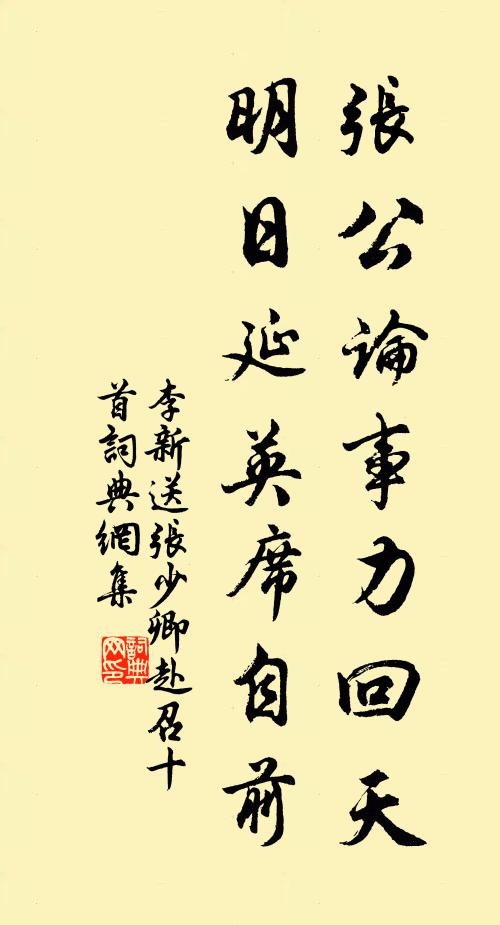 張公論事力回天
明日延英席自前
李新送張少卿赴召十
首詞典網集
詞典
网印